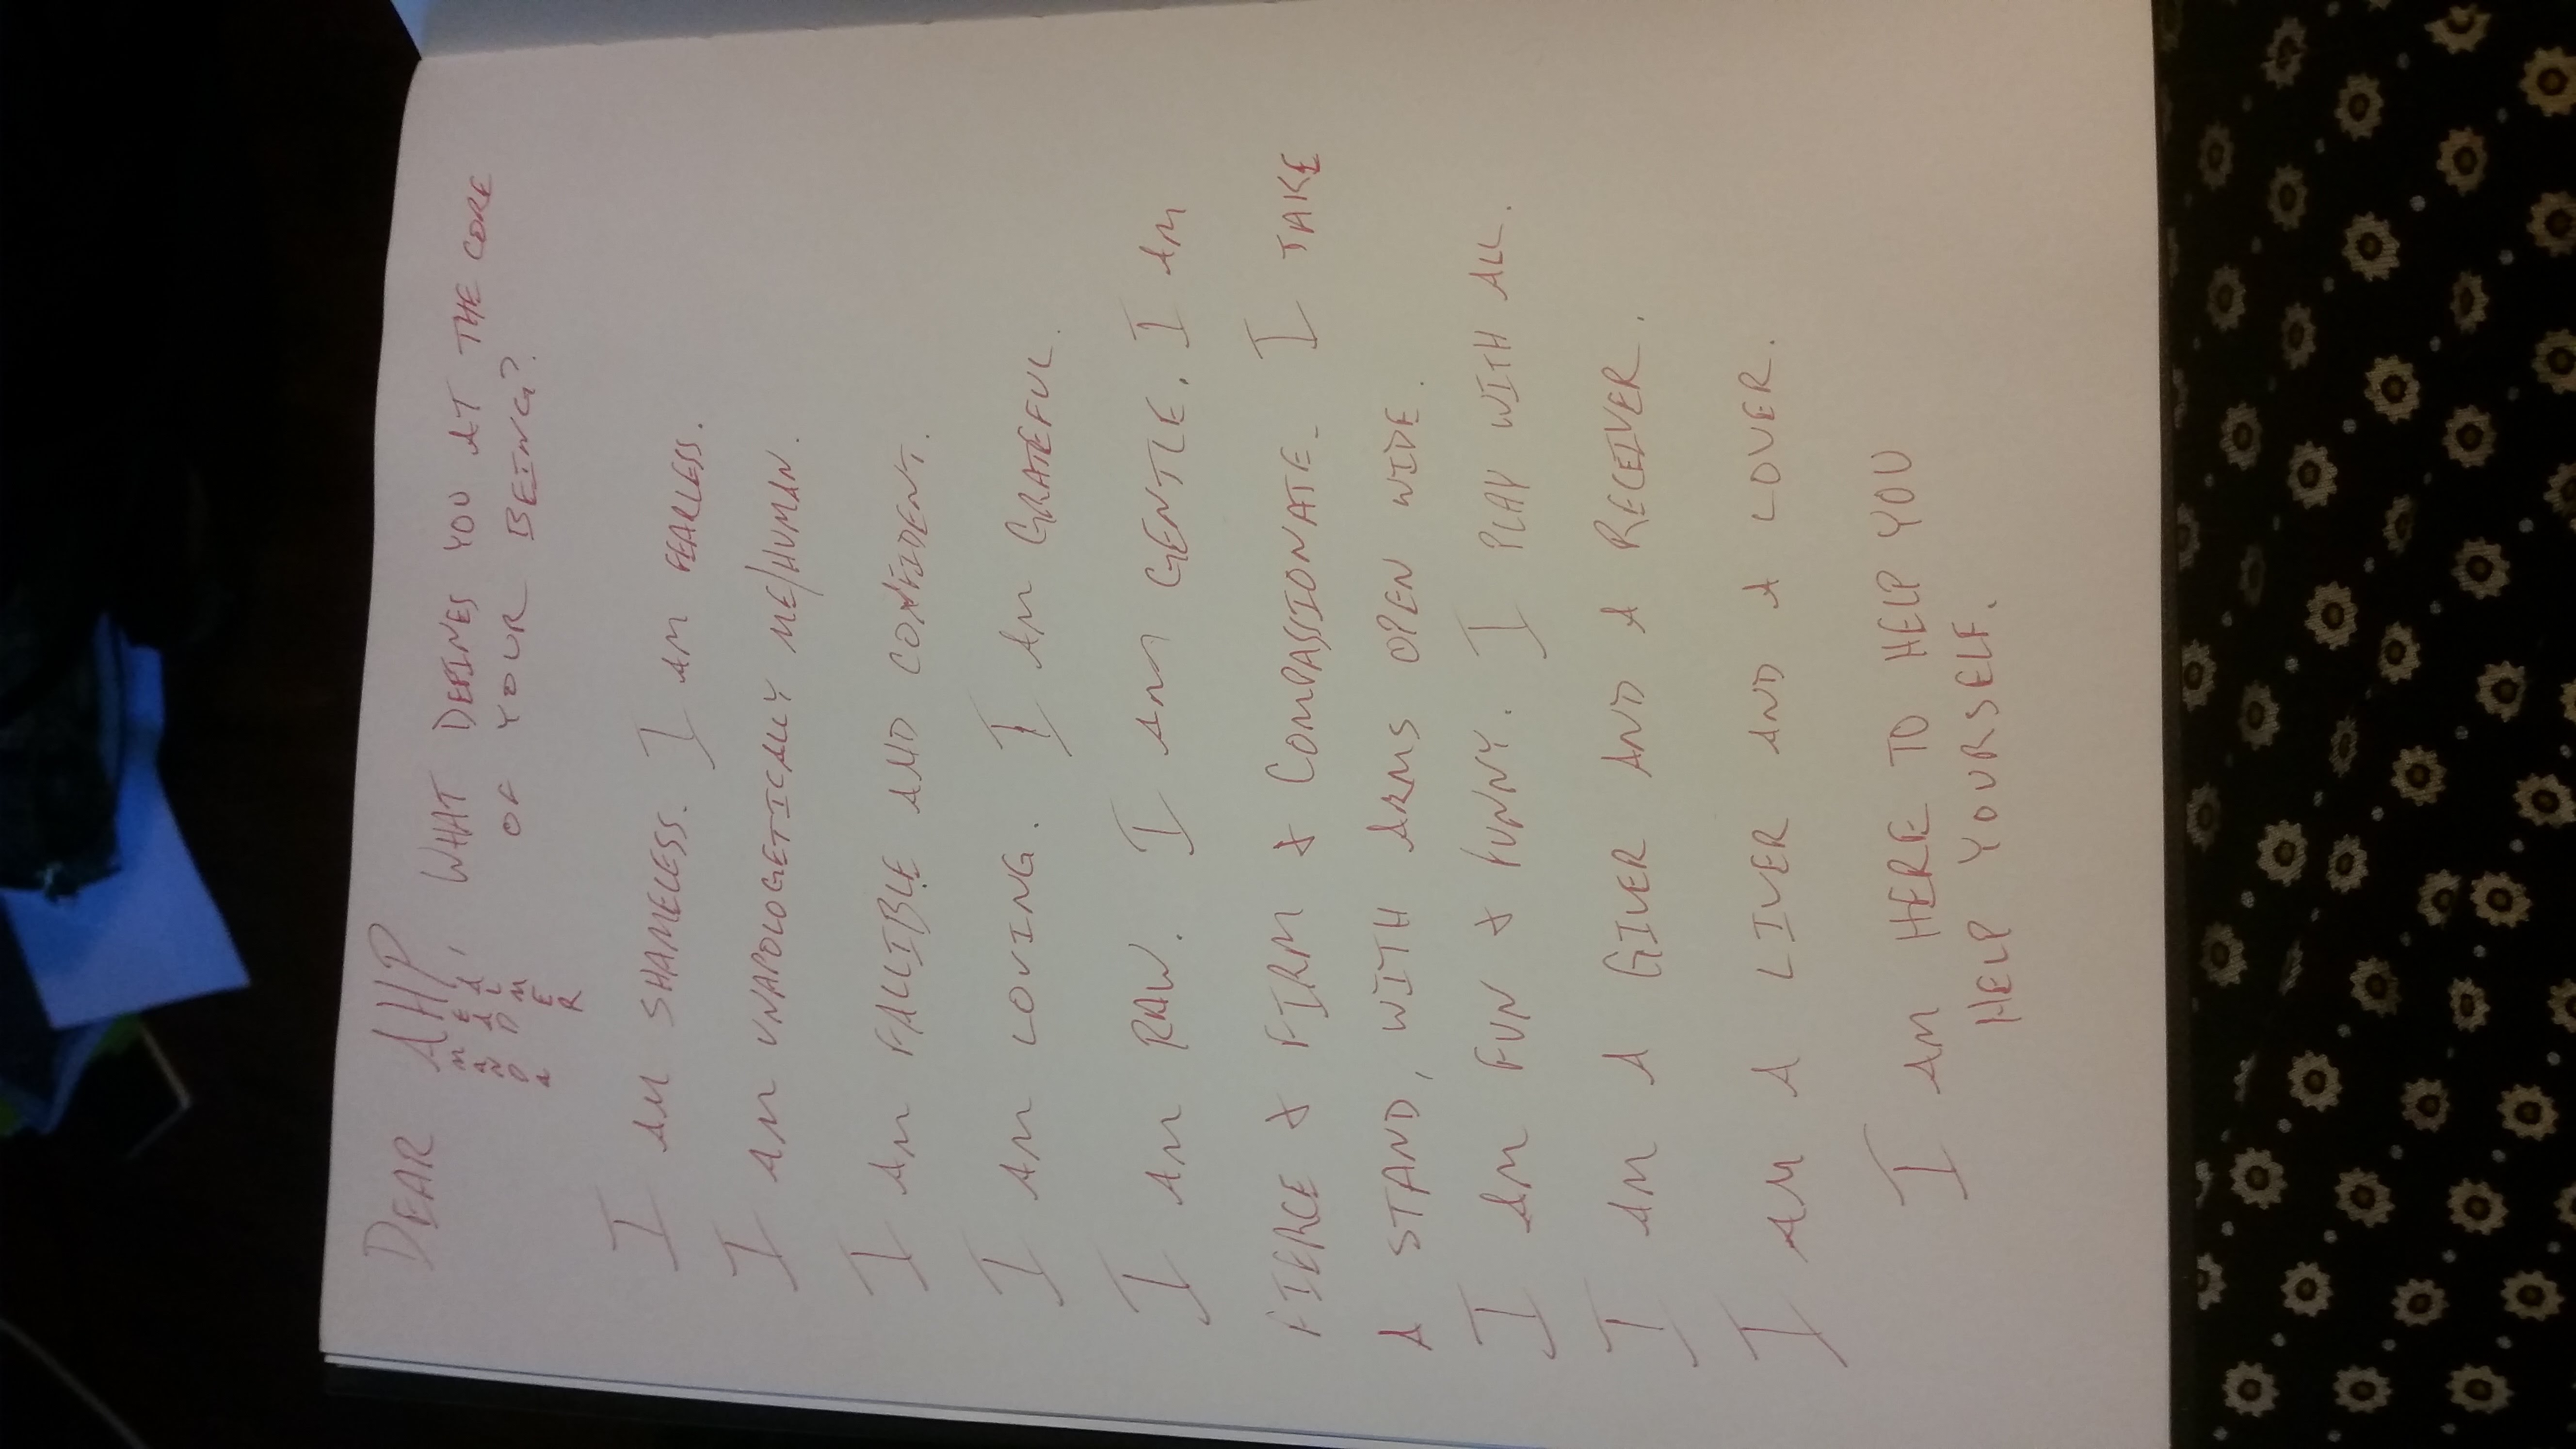 DEAR AHP, WHAT DEFINES YOU AT THE CORE
AMANDA HEAD PALMER
OF YOUR BEING?
I AM SHAMELESS. I AM FEARLESS.
I AM UNAPOLOGETICALLY ME/HUMAN.
I AM FALLIBLE AND CONFIDENT.
I AM LOVING. I AM GRATEFUL.
I AM RAW. I AM GENTLE. I AM
FIERCE & FIRM & COMPASSIONATE. I TAKE
A STAND, WITH ARMS OPEN WIDE.
I AM FUN & FUNNY. I PLAY WITH ALL.
I AM A GIVER AND A RECEIVER.
I AM A LIVER AND A LOVER.
I AM HERE TO HELP YOU
HELP YOURSELF.